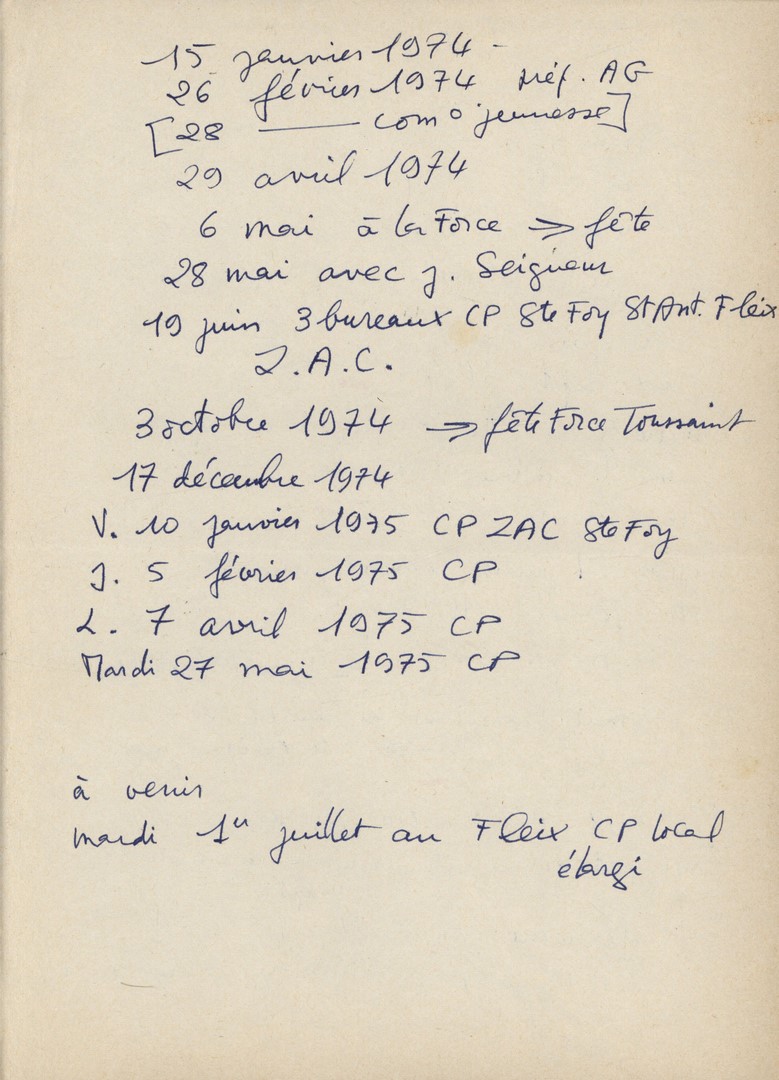 15 janvier 1974 -
26 février 1974 préf. AG
[28 —— com° jeunesse]
29 avril 1974
6 mai à la Force => fête
28 mai avec J. Seigneur
19 juin 3 bureaux CP Ste Foy St Ant. Fleix
Z.A.C.
3 octobre 1974 => fête Force Toussaint
17 décembre 1974
V. 10 janvier 1975 CP ZAC Ste Foy
J. 5 février 1975 CP
L. 7 avril 1975 CP
Mardi 27 mai 1975 CP
à venir
mardi 1er juillet au Fleix CP local
élargi